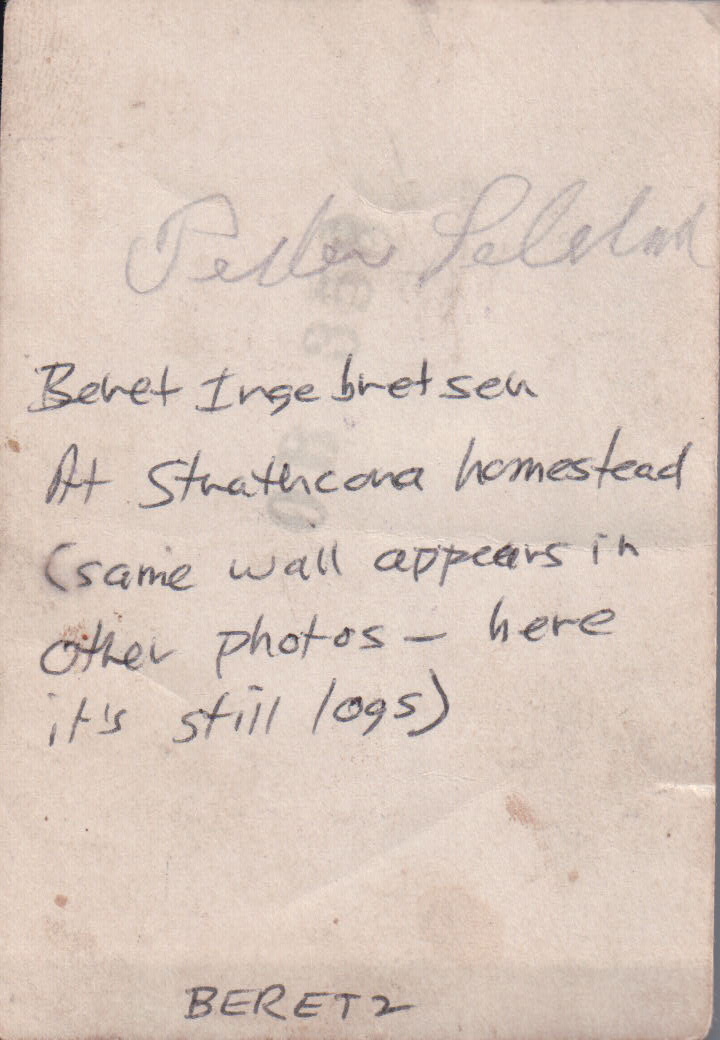 Beret Ingebretsen
At Strathcona homestead
(same wall appears in
other photos – here
it's still logs)
BERET 2